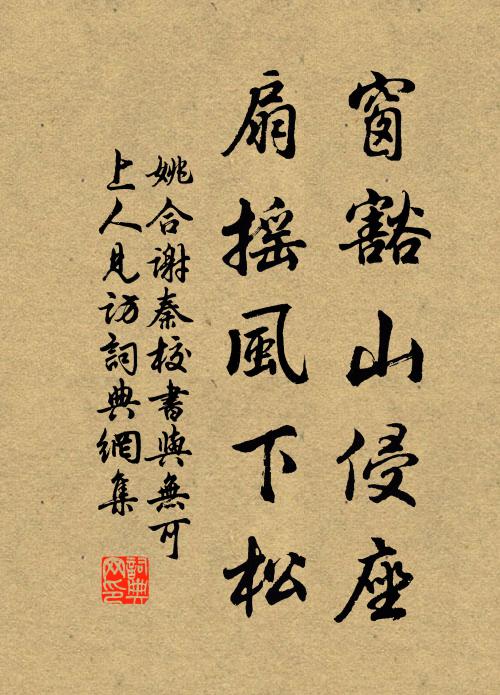 窗豁山侵座
扇摇風下松
姚合谢秦校書與無可
上人見访詞典網集
詞典网印